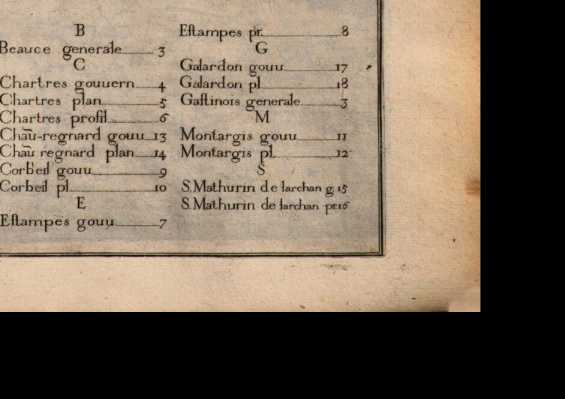 B
Beauce generale 3
C
Chartres gouuern 4
Chartres plan 5
Chartres profil 6
Chãu-regnard gouu 13
Chãu regnard plan 14
Corbeil gouu 9
Corbeil pl 10
E
Eſtampes gouu 7
Eſtampes pr. 8
G
Galardon gouu 17
Galardon pl 18
Gaſtinois generale 3
M
Montargis gouu 11
Montargis pl. 12
S
S. Mathurin de larchan g 15
S. Mathurin de larchan pr 16